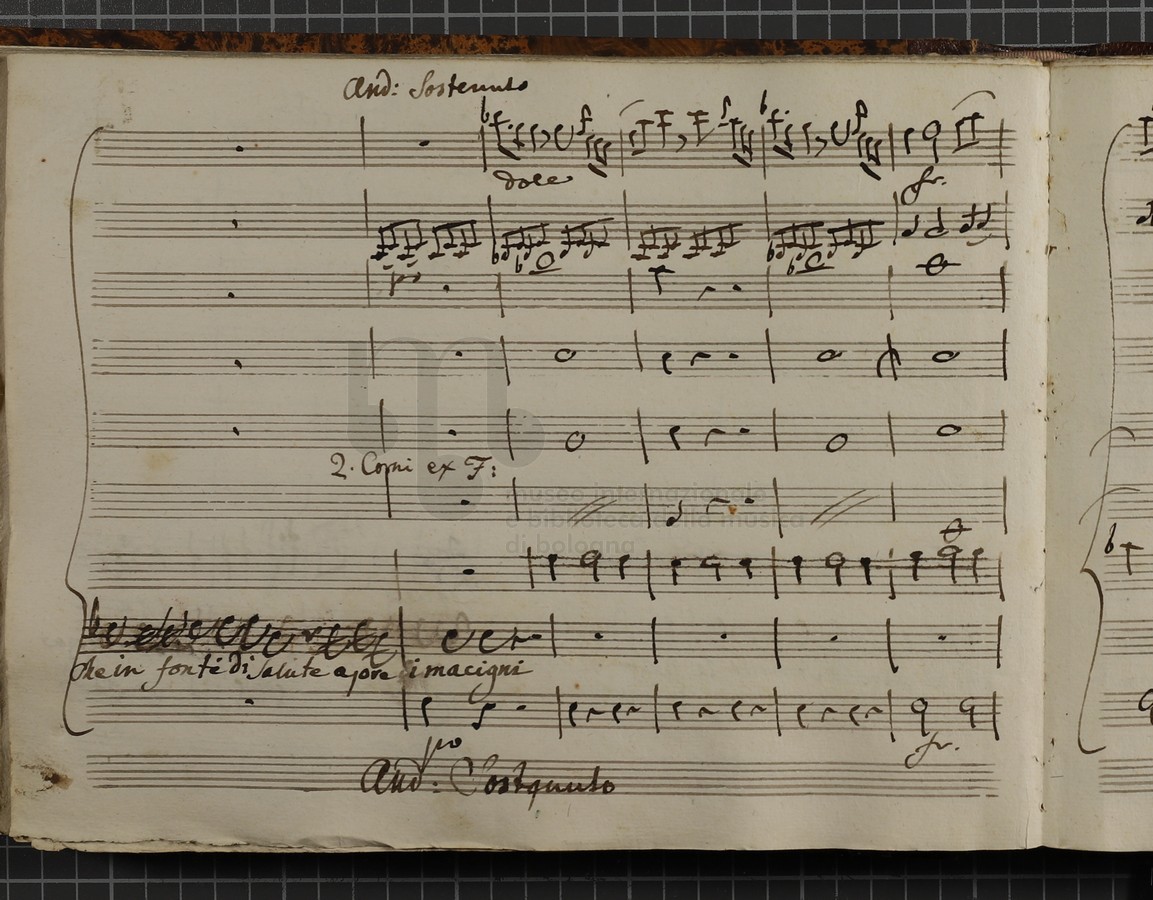 And: Sostenuto
dolce
fr.
po
2. Corni ex F:
museo internazionale
e biblioteca della musica
di bologna
Che in fonte di Salute apre i macigni
po
fr.
And: Sostenuto